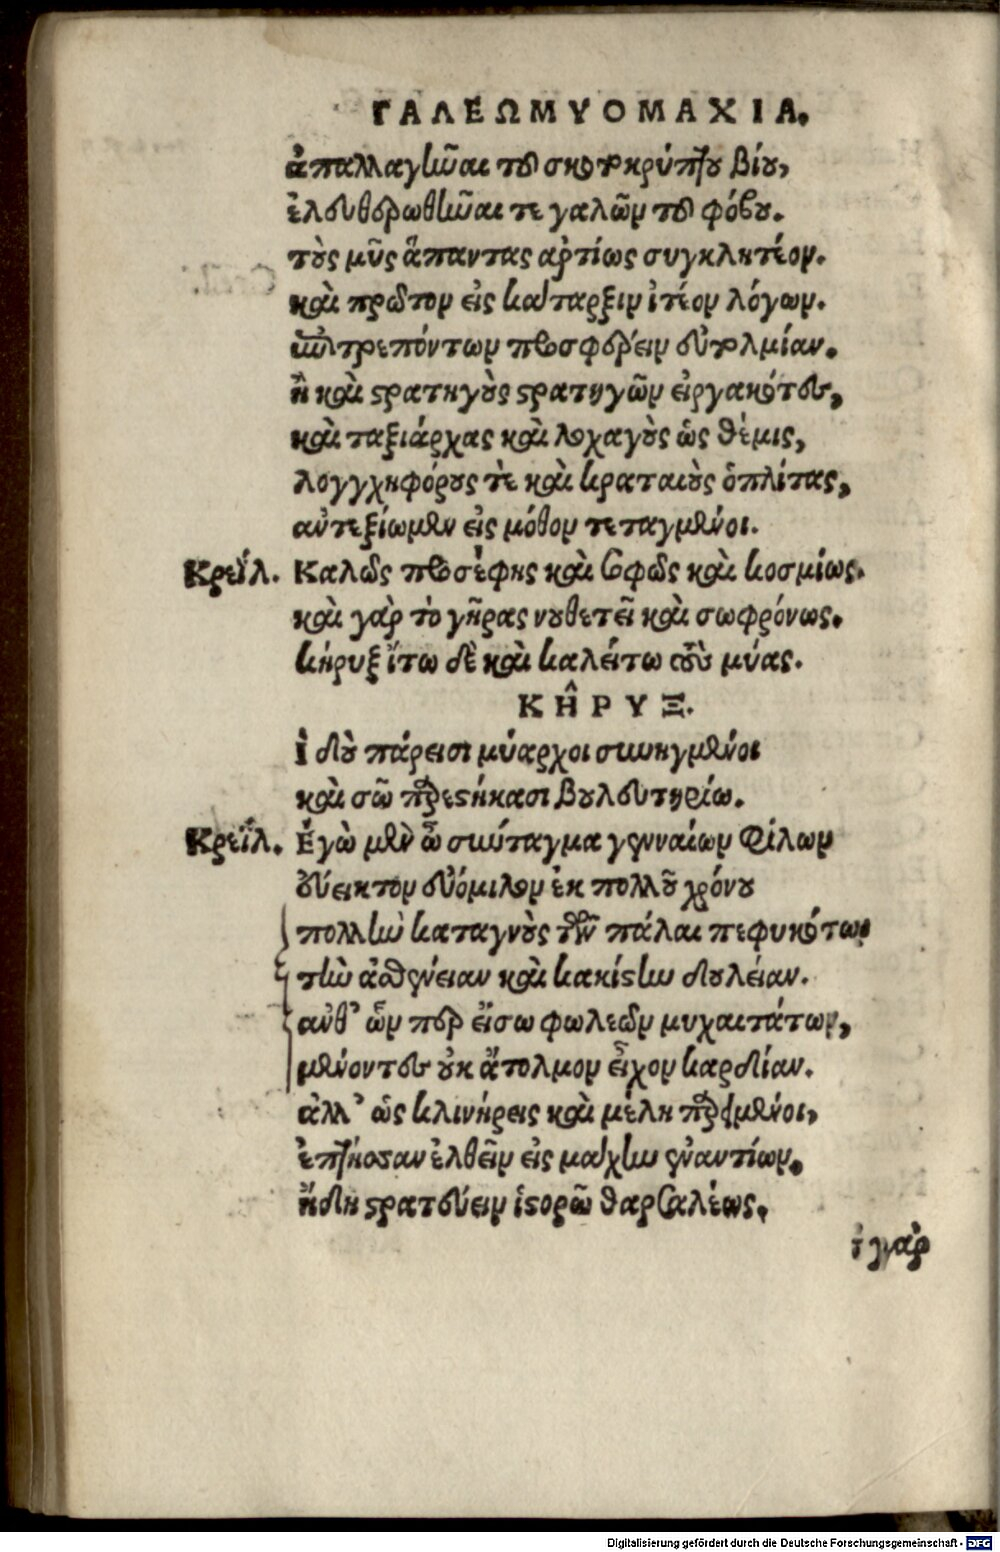 ΓΑΛΕΩΜΥΟΜΑΧΙΑ.
ἀπαλλαγῆναι τοῦ σκοτοκρύπτου βίου,
ἐλευθερωθῆναι τε γαλῶν τοῦ φόβου.
τοὺς μῦς ἅπαντας ἀρτίως συγκλητέον.
καὶ πρῶτον εἰς κατάρξιν ἰτέον λόγων.
ἐπιτρεπόντων προσφέρειν εὐτολμίαν.
ἢ καὶ στρατηγοὺς στρατηγῶν εἰργακότες,
καὶ ταξιάρχας καὶ λοχαγοὺς ὡς θέμις,
λογγχηφόρους τὲ καὶ κραταιοὺς ὁπλίτας,
ἀντεξίωμεν εἰς μόθον τεταγμένοι.
Κρεΐλ. Καλῶς προσέφης καὶ σοφῶς καὶ κοσμίως.
καὶ γὰρ τὸ γῆρας νουθετεῖ καὶ σωφρόνως.
κήρυξ ἴτω δὲ καὶ καλείτω τοὺς μύας.
ΚΗ͂ΡΥΞ.
Ἰδοὺ πάρεισι μύαρχοι συνηγμένοι
καὶ σῶ παρεστήκασι βουλευτηρίω.
Κρεΐλ. Ἐγὼ μὲν ὦ σύνταγμα γενναίων φίλων
εὔεικτον εὐόμιλον ἐκ πολλοῦ χρόνου
πολλὴν καταγνοὺς τῶν πάλαι πεφυκότων
τὴν ἀσθένειαν καὶ κακίστην δουλείαν.
ἀνθ' ὧν περ εἴσω φωλεῶν μυχαιτάτων,
μένοντες οὐκ ἄτολμον εἶχον καρδίαν.
ἀλλ' ὡς κλινήρεις καὶ μέλη παρειμένοι,
ἐπτήοσαν ἐλθεῖν εἰς μάχην ἐναντίων.
ἤδη στρατεύειν ἱστορῶ θαρσαλέως.
ἰ γὰρ
Digitalisierung gefördert durch die Deutsche Forschungsgemeinschaft - DFG